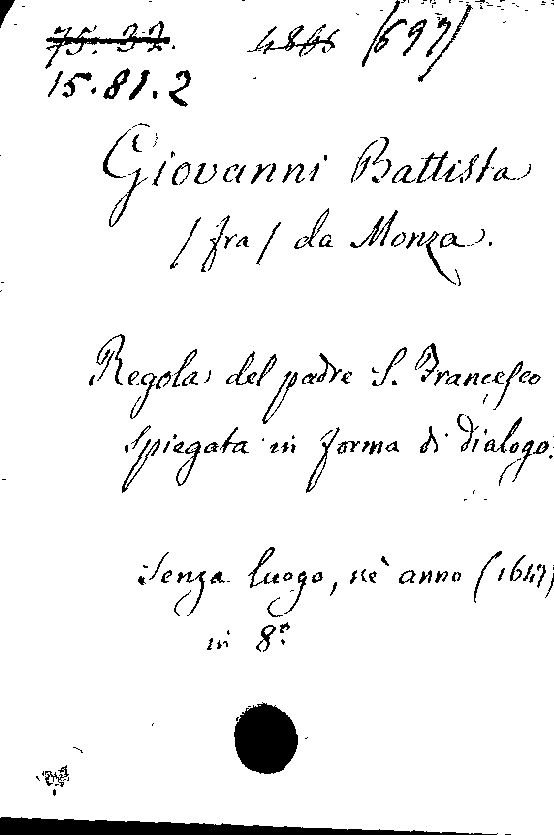 75. 32. 4866 (697)
15.81.2
Giovanni Battista
/ fra / da Monza.
Regola del padre S. Francesco
spiegata in forma di dialogo.
Senza luogo, nè anno (1647)
in 8º.